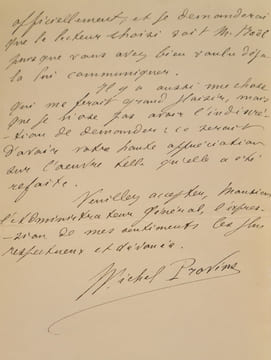 officiellement, et je demanderai
que le lecteur choisi soit M. Noël
puisque vous avez bien voulu déjà
la lui communiquer.
Il y a aussi une chose
qui me ferait grand plaisir, mais
que je n'ose pas avoir l'indiscré-
-tion de demander : ce serait
d'avoir votre haute appréciation
sur l'oeuvre telle qu'elle a été
refaite.
Veuillez accepter, Monsieur
l'Administrateur Général, l'expres-
-sion de mes sentiments les plus
respectueux et dévoués.
Michel Provins